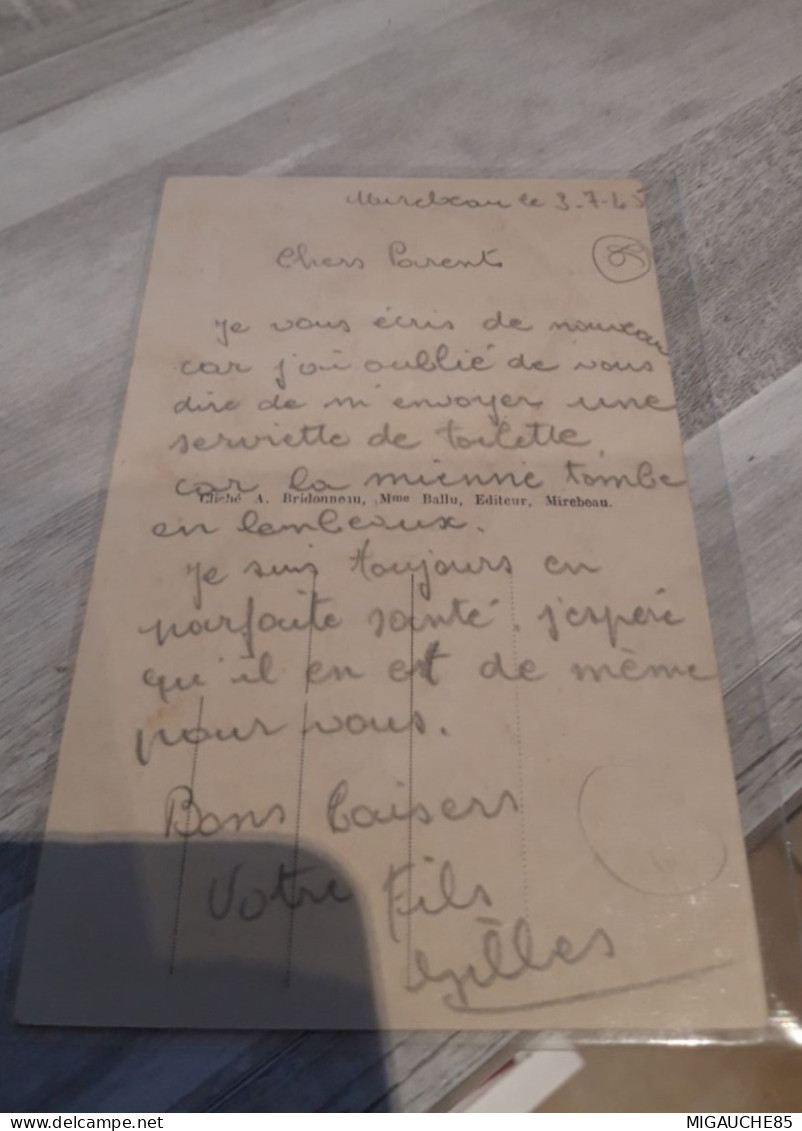 Mirebeau le 3-7-45
Chers Parents
85
Je vous écris de nouveau
car j'ai oublié de vous
dire de m'envoyer une
serviette de toilette
car la mienne tombe
Cliché A. Bridonneau, Mme Ballu, Editeur, Mirebeau.
en lambeaux.
Je suis toujours en
parfaite santé. j'espère
qu'il en est de même
pour vous.
Bons baisers
Votre fils
Gilles
delcampe.net
MIGAUCHE85